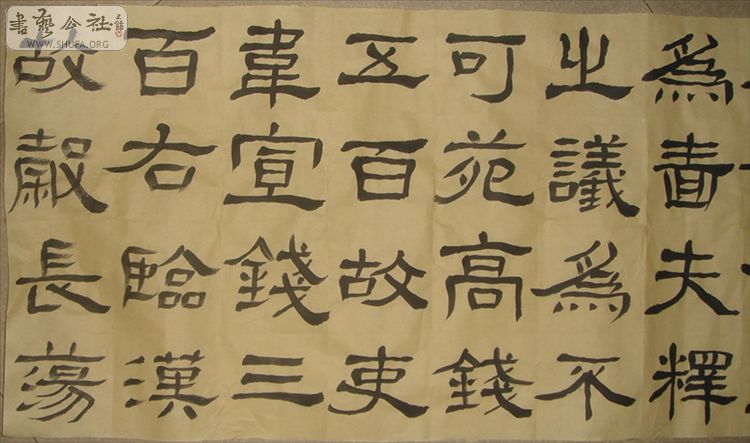 書藝公社
WWW.SHUFA.ORG
為嗇夫釋
之議為不
可苑高錢
五百故吏
韋宣錢三
百右臨漢
故穀長蕩